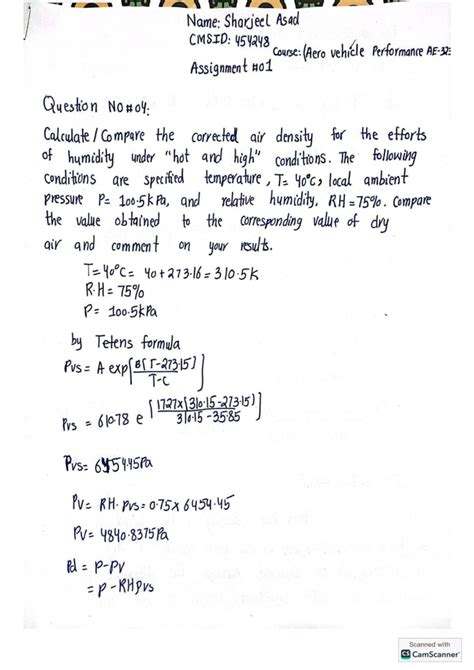 Name: Sharjeel Asad
CMSID: 454248
Course: (Aero vehicle Performance AE-32
Assignment #01
Question NO#04:
Calculate/Compare the corrected air density for the efforts
of humidity under "hot and high" conditions. The following
conditions are specified temperature, T= 40°C, local ambient
pressure P= 100.5kPa, and relative humidity, RH=75%. Compare
the value obtained to the corresponding value of dry
air and comment on your results.
T=40°C= 40+273.16=310.5K
R.H= 75%
P= 100.5kPa
by Tetens formula
Pvs= A exp[B[T-273.15]/T-C]
Pvs = 610.78 e [17.27x(310.15-273.15)/310.15-35.85]
Pvs= 6454.45Pa
Pv= RH.Pvs=0.75x 6454.45
Pv= 4840.8375Pa
Pd = P-Pv
= P-RHPvs
Scanned with
CS CamScanner